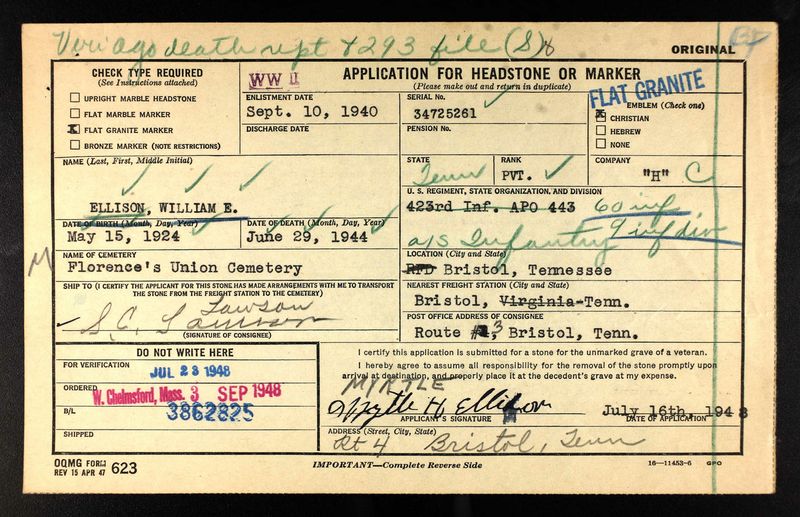 Veri ago death rept & 293 file (S)
ORIGINAL
CHECK TYPE REQUIRED
(See Instructions attached)
UPRIGHT MARBLE HEADSTONE
FLAT MARBLE MARKER
X FLAT GRANITE MARKER
BRONZE MARKER (NOTE RESTRICTIONS)
WW II
APPLICATION FOR HEADSTONE OR MARKER
(Please make out and return in duplicate)
ENLISTMENT DATE
Sept. 10, 1940
DISCHARGE DATE
SERIAL No.
34725261
PENSION No.
FLAT GRANITE
EMBLEM (Check one)
X CHRISTIAN
HEBREW
NONE
NAME (Last, First, Middle Initial)
ELLISON, WILLIAM E.
STATE
Tenn
RANK
PVT.
COMPANY
"H" C
U. S. REGIMENT, STATE ORGANIZATION, AND DIVISION
423rd Inf. APO 443 60 inf
9 inf div
a/s Infantry
DATE OF BIRTH (Month, Day, Year)
May 15, 1924
DATE OF DEATH (Month, Day, Year)
June 29, 1944
M
NAME OF CEMETERY
Florence's Union Cemetery
LOCATION (City and State)
RFD Bristol, Tennessee
SHIP TO (I CERTIFY THE APPLICANT FOR THIS STONE HAS MADE ARRANGEMENTS WITH ME TO TRANSPORT
THE STONE FROM THE FREIGHT STATION TO THE CEMETERY)
Lawson
S. C. Lawson
(SIGNATURE OF CONSIGNEE)
NEAREST FREIGHT STATION (City and State)
Bristol, Virginia-Tenn.
POST OFFICE ADDRESS OF CONSIGNEE
Route 3, Bristol, Tenn.
DO NOT WRITE HERE
FOR VERIFICATION
JUL 23 1948
ORDERED
W. Chelmsford, Mass. 3 SEP 1948
B/L
3862825
SHIPPED
I certify this application is submitted for a stone for the unmarked grave of a veteran.
I hereby agree to assume all responsibility for the removal of the stone promptly upon
arrival at destination, and properly place it at the decedent's grave at my expense.
MYRTLE
Myrtle H. Ellison
APPLICANT'S SIGNATURE
July 16th, 1948
DATE OF APPLICATION
ADDRESS (Street, City, State)
Rt 4 Bristol, Tenn
OQMG FORM
REV 15 APR 47 623
IMPORTANT—Complete Reverse Side
16—11453-6 GPO